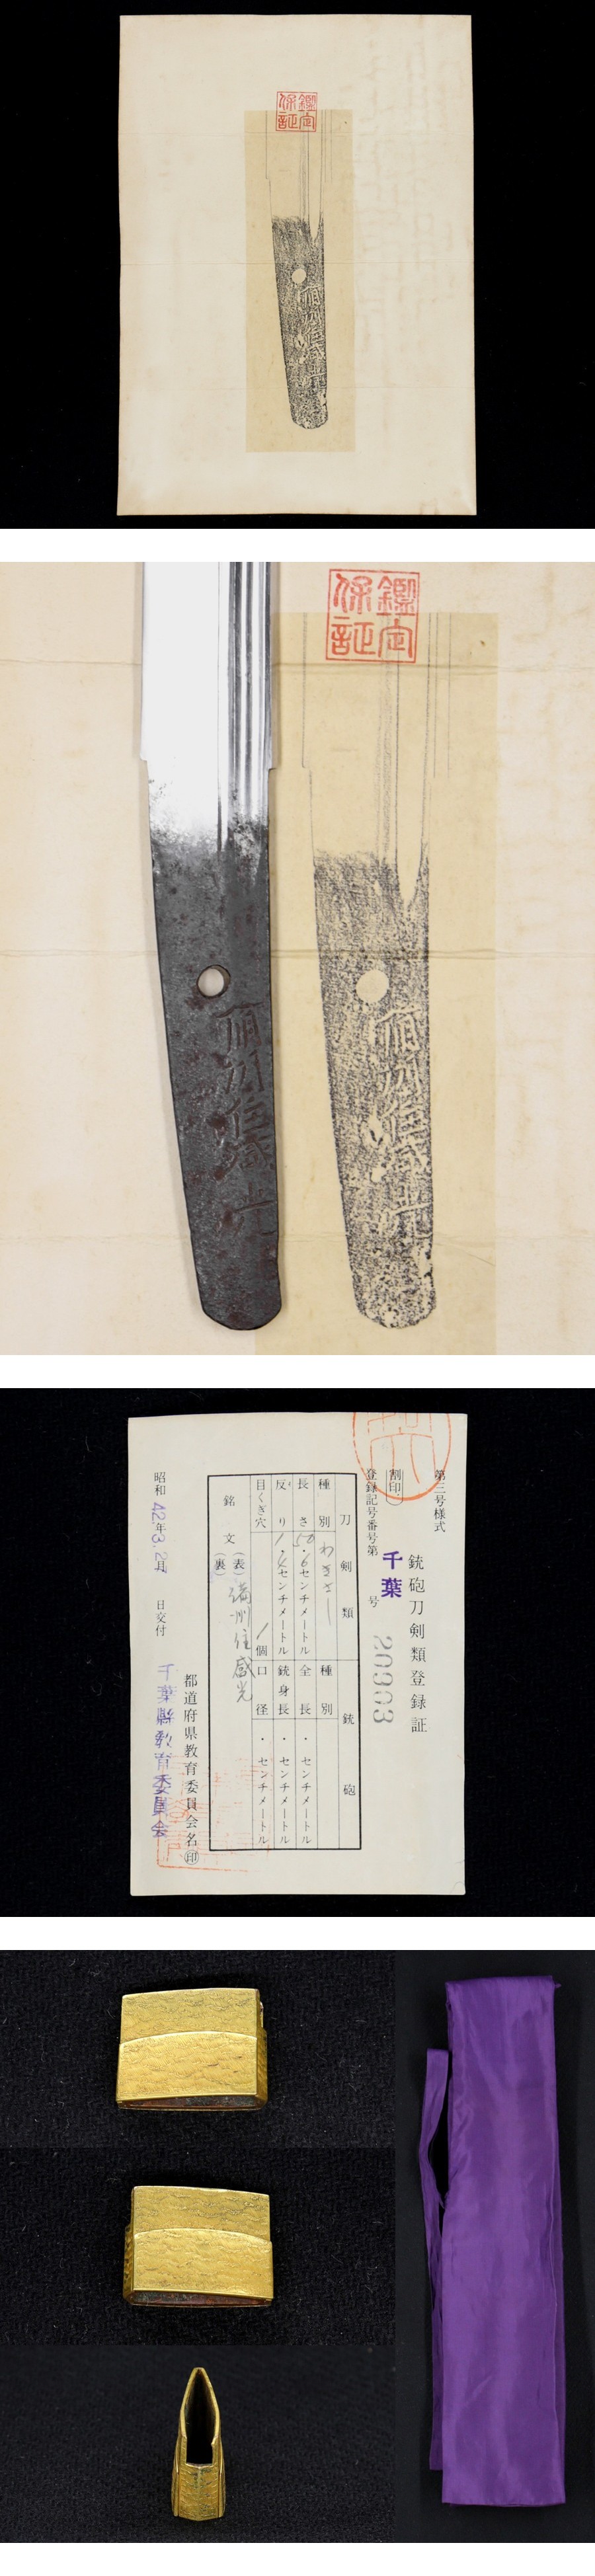 鑑定
保証
備州住盛光
鑑定
保証
備州住盛光
備州住盛光
第三号様式
銃砲刀剣類登録証
割印
登録記号番号第 千葉 号 20903
刀剣類 銃砲
種別 わきざし 種別
長さ 50・6センチメートル 全長 ・ センチメートル
反り 1・4センチメートル 銃身長 ・ センチメートル
目くぎ穴 1個 口径 ・ センチメートル
銘文 (表) 備州住盛光
(裏)
都道府県教育委員会名㊞
昭和42年3月 日交付 千葉縣教育委員会